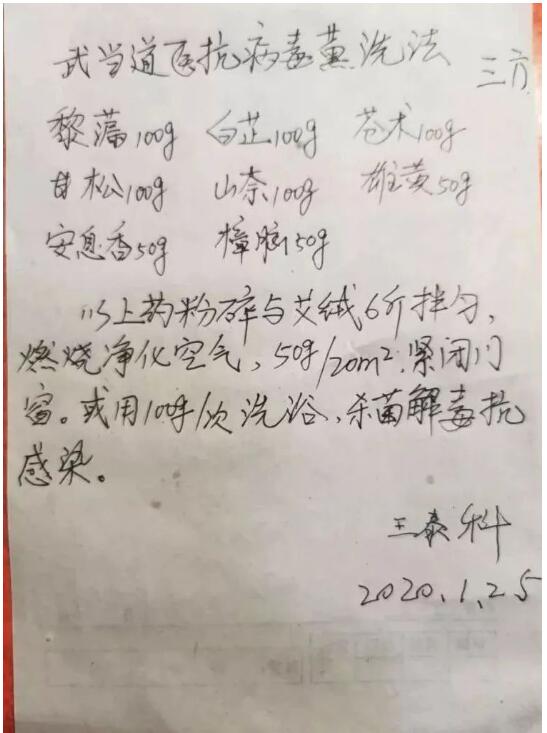 武当道医抗病毒薰洗法
三方
黎藁100g 白芷100g 苍术100g
甘松100g 山奈100g 雄黄50g
安息香50g 樟脑50g
以上药粉碎与艾绒6斤拌匀,
燃烧净化空气,50g/20m²,紧闭门
窗。或用100g/次洗浴,杀菌解毒抗
感染。
王泰科
2020.1.25